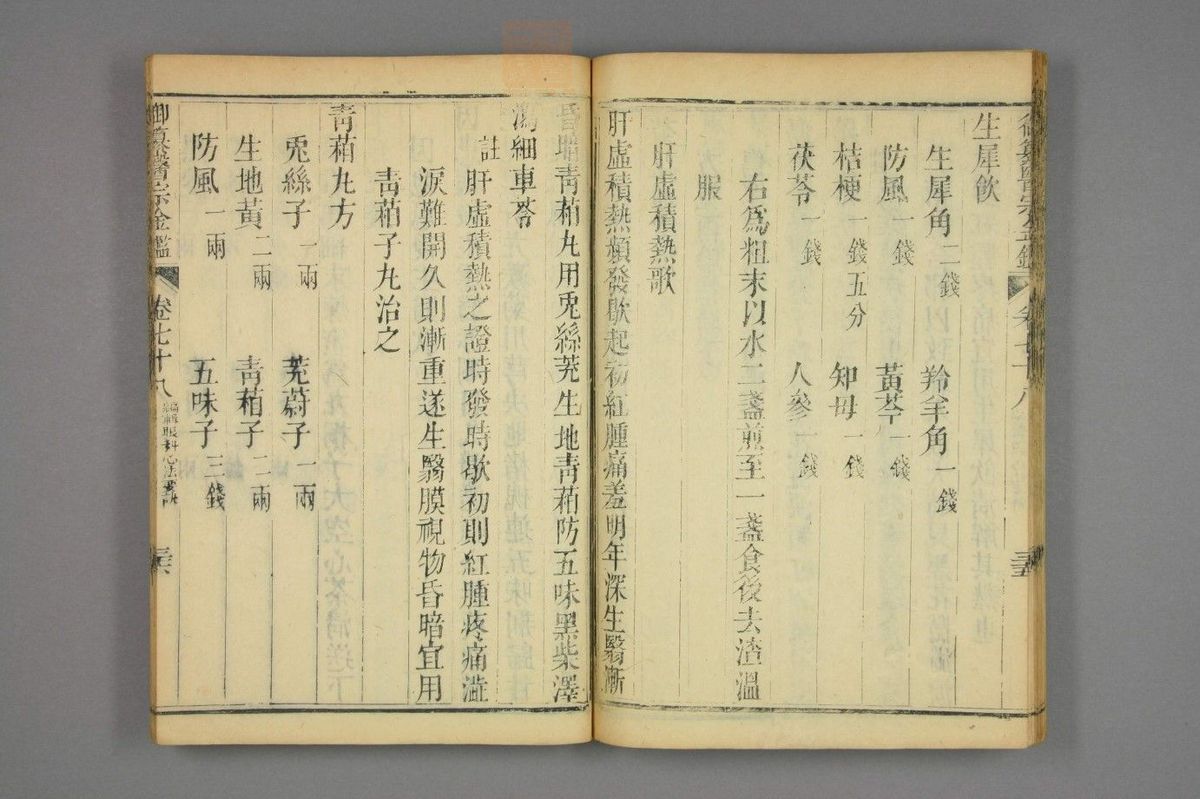 御纂醫宗金鑑 卷七十八 三五
生犀飲
生犀角二錢 羚羊角一錢
防風一錢 黃芩一錢
桔梗一錢五分 知母一錢
茯苓一錢 人參一錢
右爲粗末以水二盞煎至一盞食後去渣溫
服
肝虛積熱歌
肝虛積熱頻發歇起初紅腫痛羞明年深生翳漸
昏暗靑葙丸用兎絲茺生地靑葙防五味黑柴澤
瀉細車苓
註肝虛積熱之證時發時歇初則紅腫疼痛澁
淚難開久則漸重遂生翳膜視物昏暗宜用
靑葙子丸治之
靑葙丸方
兎絲子一兩 茺蔚子一兩
生地黃二兩 靑葙子二兩
防風一兩 五味子三錢
御纂醫宗金鑑 卷七十八 編輯眼科心法要訣 三六